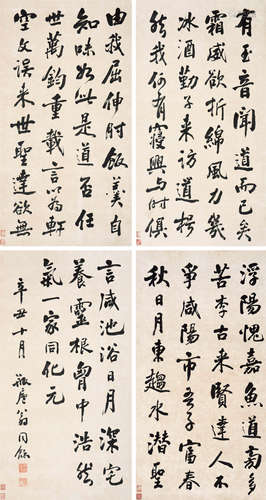 浮陽愧嘉魚道旁多
苦李古來賢達人不
爭咸陽市吾子富春
秋日月東趨水潛聖
有玉音聞道而已矣
霜威欲折綿風力幾
冰酒勤子來訪道
我何有寢興與時俱
由我屈伸肘飯羹自
知味如此是道否任
世萬鈞重載言以為軒
空文誤來世聖達欲無
言咸池浴日月深宅
養靈根胷中浩然
氣一家同化元
辛丑十月 瓶廬翁同龢